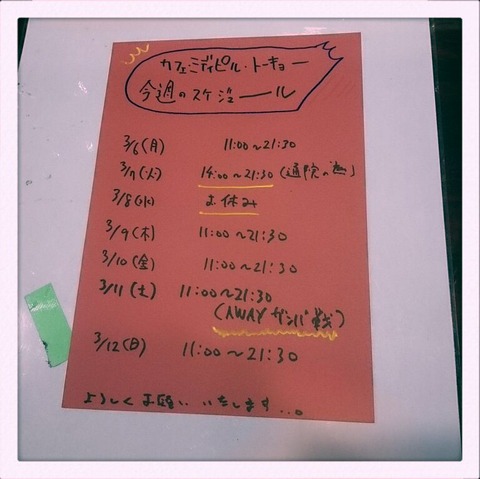 カフェミディピル・トーキョー
今週のスケジュール
3/6(月) 11:00~21:30
3/7(火) 14:00~21:30(通院の為)
3/8(水) お休み
3/9(木) 11:00~21:30
3/10(金) 11:00~21:30
3/11(土) 11:00~21:30
(AWAY ガンバ戦)
3/12(日) 11:00~21:30
よろしくお願いいたします...。